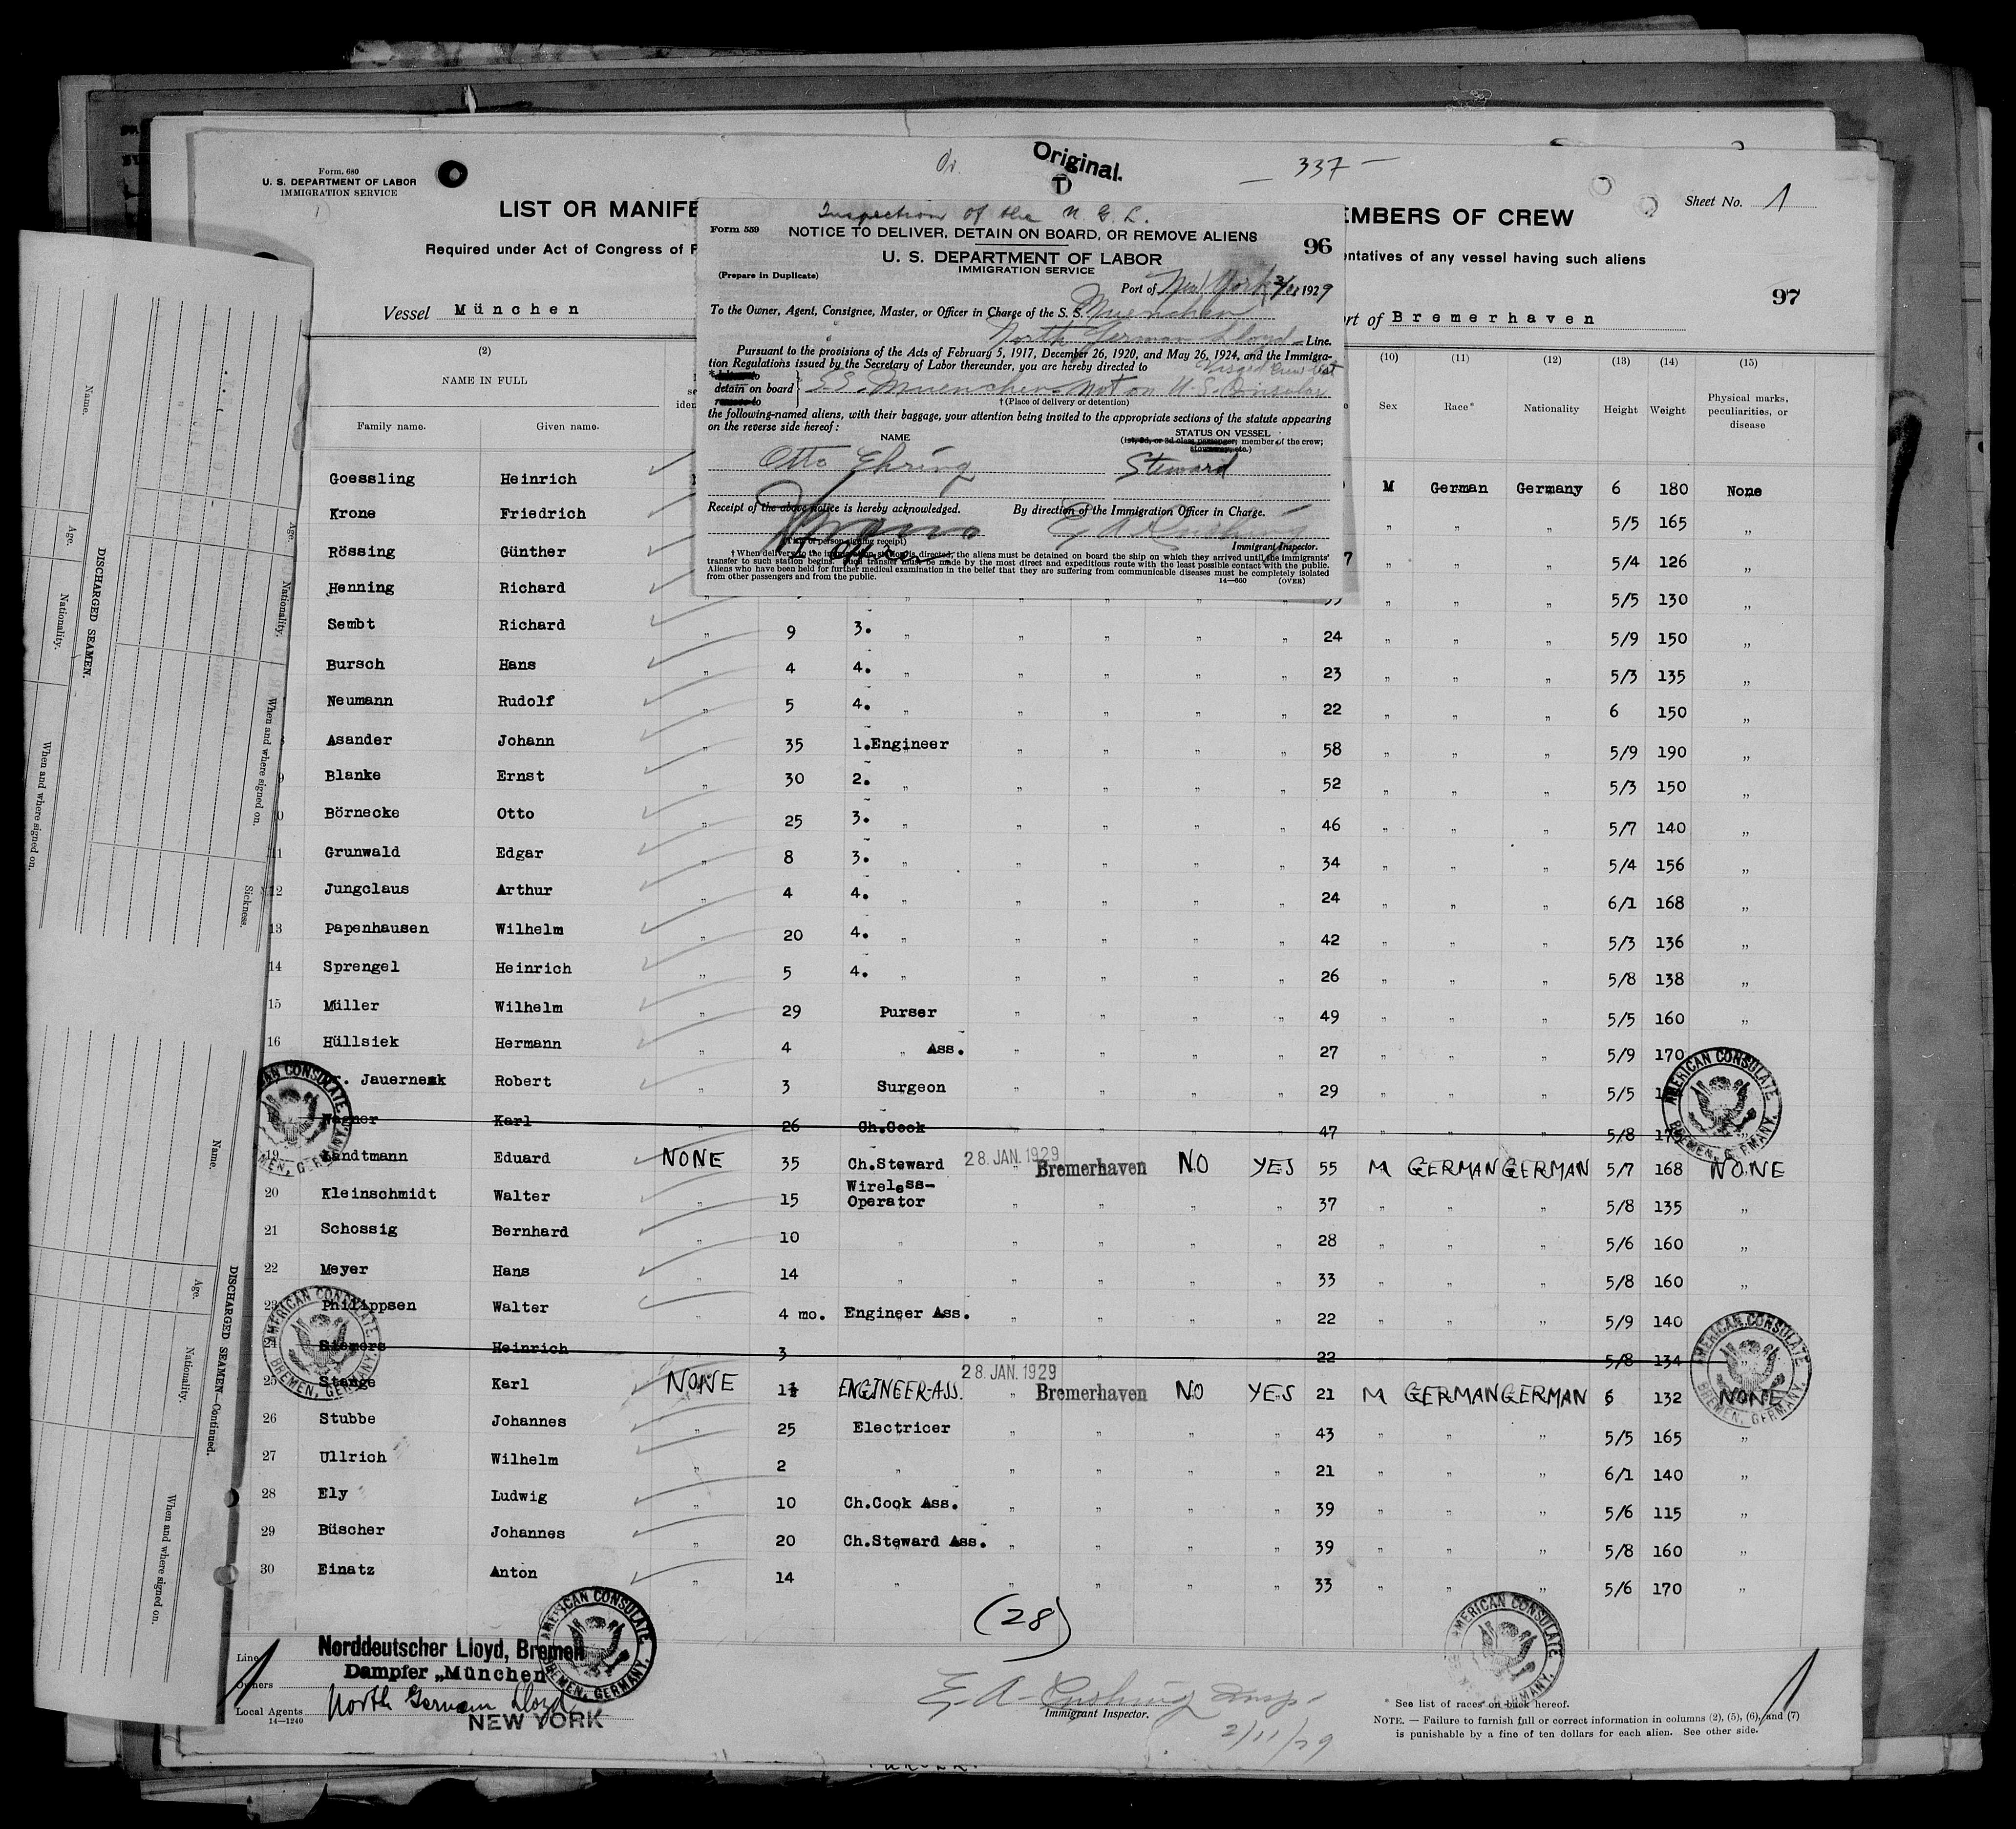 Form. 680
U. S. DEPARTMENT OF LABOR
IMMIGRATION SERVICE
Original.
337
Sheet No. 1
LIST OR MANIFE
EMBERS OF CREW
Required under Act of Congress of F
entatives of any vessel having such aliens
97
Vessel München
ort of Bremerhaven
Inspection of the N. G. L.
Form 559 NOTICE TO DELIVER, DETAIN ON BOARD, OR REMOVE ALIENS 96
U. S. DEPARTMENT OF LABOR
IMMIGRATION SERVICE
(Prepare in Duplicate)
Port of New York 1929
To the Owner, Agent, Consignee, Master, or Officer in Charge of the S. S. Muenchen
North German Lloyd Line.
Pursuant to the provisions of the Acts of February 5, 1917, December 26, 1920, and May 26, 1924, and the Immigra-
tion Regulations issued by the Secretary of Labor thereunder, you are hereby directed to
Visaed Crew List
detain on board S.S. Muenchen Not on U.S. Consular
† (Place of delivery or detention)
the following-named aliens, with their baggage, your attention being invited to the appropriate sections of the statute appearing
on the reverse side hereof:
NAME STATUS ON VESSEL
(1st, 2d, or 3d class passenger; member of the crew;
stowaway, etc.)
Otto Ehring Steward
Receipt of the above notice is hereby acknowledged. By direction of the Immigration Officer in Charge.
Immigrant Inspector.
† When delivery to the immigration station is directed, the aliens must be detained on board the ship on which they arrived until the immigrants'
transfer to such station begins. Such transfer must be made by the most direct and expeditious route with the least possible contact with the public.
Aliens who have been held for further medical examination in the belief that they are suffering from communicable diseases must be completely isolated
from other passengers and from the public. 14—660 (OVER)
(2) (10) (11) (12) (13) (14) (15)
NAME IN FULL
Family name. Given name. Sex Race* Nationality Height Weight Physical marks, peculiarities, or disease
Goessling Heinrich M German Germany 6 180 None
Krone Friedrich „ „ „ 5/5 165 „
Rössing Günther 7 „ „ „ 5/4 126 „
Henning Richard „ „ „ 5/5 130 „
Sembt Richard „ 9 3. „ „ „ „ „ 24 „ „ „ 5/9 150 „
Bursch Hans „ 4 4. „ „ „ „ „ 23 „ „ „ 5/3 135 „
Neumann Rudolf „ 5 4. „ „ „ „ „ 22 „ „ „ 6 150 „
Asander Johann „ 35 1.Engineer „ „ „ „ 58 „ „ „ 5/9 190 „
9 Blanke Ernst „ 30 2. „ „ „ „ „ 52 „ „ „ 5/3 150 „
0 Börnecke Otto „ 25 3. „ „ „ „ „ 46 „ „ „ 5/7 140 „
11 Grunwald Edgar „ 8 3. „ „ „ „ „ 34 „ „ „ 5/4 156 „
12 Jungclaus Arthur „ 4 4. „ „ „ „ „ 24 „ „ „ 6/1 168 „
13 Papenhausen Wilhelm „ 20 4. „ „ „ „ „ 42 „ „ „ 5/3 136 „
14 Sprengel Heinrich „ 5 4. „ „ „ „ „ 26 „ „ „ 5/8 138 „
15 Müller Wilhelm „ 29 Purser „ „ „ „ 49 „ „ „ 5/5 160 „
16 Hüllsiek Hermann „ 4 „ Ass. „ „ „ „ 27 „ „ „ 5/9 170
. Jauernesk Robert „ 3 Surgeon „ „ „ „ 29 „ „ „ 5/5
Wagner Karl 26 Ch.Cook 47 „ „ „ 5/8
28. JAN. 1929
19 Landtmann Eduard NONE 35 Ch.Steward „ Bremerhaven NO YES 55 M GERMAN GERMAN 5/7 168 NONE
20 Kleinschmidt Walter „ 15 Wireless-Operator „ „ „ „ 37 „ „ „ 5/8 135 „
21 Schossig Bernhard „ 10 „ „ „ „ „ 28 „ „ „ 5/6 160 „
22 Meyer Hans „ 14 „ „ „ „ „ 33 „ „ „ 5/8 160 „
23 Philippsen Walter „ 4 mo. Engineer Ass. „ „ „ „ 22 „ „ „ 5/9 140
24 Siemers Heinrich 3 22 5/8 134
28. JAN. 1929
25 Stange Karl NONE 1½ ENGINEER-ASS. „ Bremerhaven NO YES 21 M GERMAN GERMAN 6 132 NONE
26 Stubbe Johannes „ 25 Electricer „ „ „ „ 43 „ „ „ 5/5 165 „
27 Ullrich Wilhelm „ 2 „ „ „ „ „ 21 „ „ „ 6/1 140 „
28 Ely Ludwig „ 10 Ch.Cook Ass. „ „ „ „ 39 „ „ „ 5/6 115 „
29 Büscher Johannes „ 20 Ch.Steward Ass. „ „ „ „ 39 „ „ „ 5/8 160 „
30 Einatz Anton „ 14 „ „ „ „ „ 33 „ „ „ 5/6 170 „
AMERICAN CONSULATE BREMEN, GERMANY.
AMERICAN CONSULATE BREMEN, GERMANY.
AMERICAN CONSULATE BREMEN, GERMANY.
AMERICAN CONSULATE BREMEN, GERMANY.
AMERICAN CONSULATE BREMEN, GERMANY.
AMERICAN CONSULATE BREMEN, GERMANY.
(28)
Line Norddeutscher Lloyd, Bremen
Dampfer „München
Owners
Local Agents North German Lloyd
NEW YORK
14—1240
E. A. Cushing Insp.
Immigrant Inspector.
2/11/29
* See list of races on back hereof.
NOTE. — Failure to furnish full or correct information in columns (2), (5), (6), and (7)
is punishable by a fine of ten dollars for each alien. See other side.
DISCHARGED SEAMEN.
Name. Age. Nationality. When and where signed on.
Name. Age. Nationality. When and where signed on. Sickness.
DISCHARGED SEAMEN—Continued.
Name. Age. Nationality. When and where signed on.